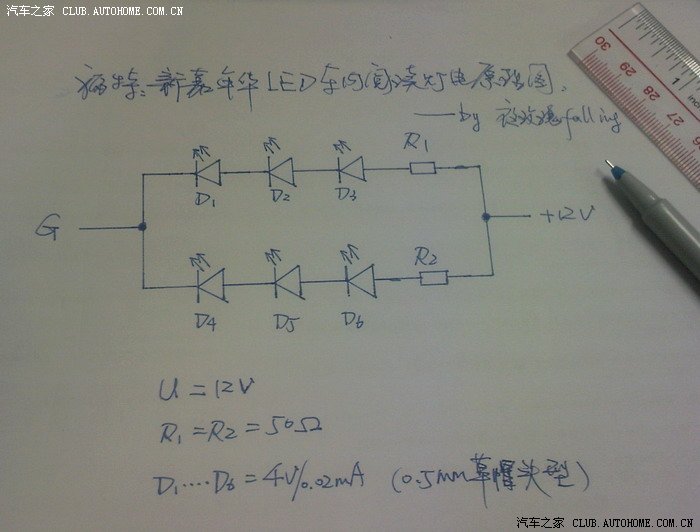 汽车之家 CLUB.AUTOHOME.COM.CN
福特:新嘉年华LED车内阅读灯电原理图.
——by falling
R1
D1 D2 D3
G
+12V
R2
D4 D5 D6
U=12V
R1=R2=50Ω
D1....D6=4V/0.02mA (0.5mm草帽头型)
30
29
28
27
26
1
汽车之家 CLUB.AUTOHOME.COM.CN